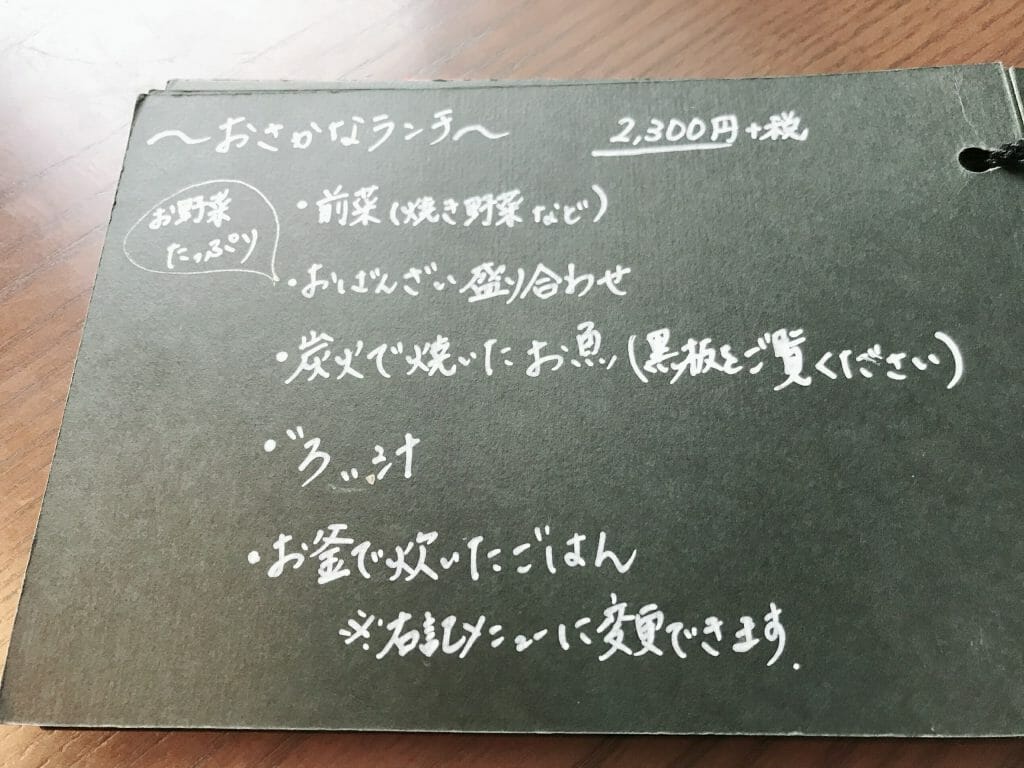 〜おさかなランチ〜 2,300円+税
お野菜
たっぷり
・前菜(焼き野菜など)
・おばんざい盛り合わせ
・炭火で焼いたお魚(黒板をご覧ください)
汁
・お釜で炊いたごはん
※右記メニューに変更できます.